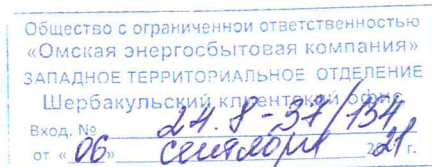 Общество с ограниченной ответственностью
«Омская энергосбытовая компания»
ЗАПАДНОЕ ТЕРРИТОРИАЛЬНОЕ ОТДЕЛЕНИЕ
Шербакульский клиентский офис
Вход. № 24.8-37/134
от «06» сентября 2021 г.